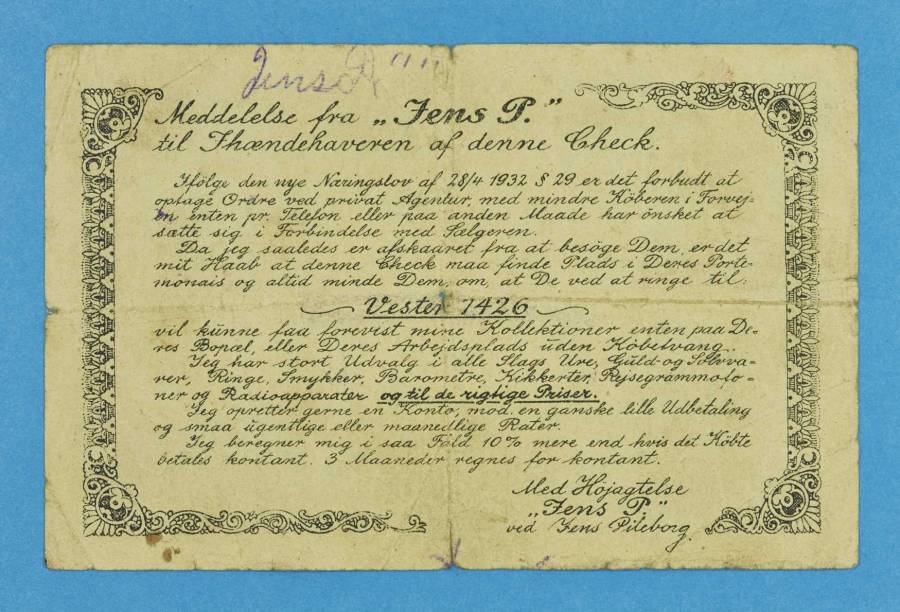 Jens P. " "
Meddelelse fra „Jens P."
til Ihændehaveren af denne Check.
Ifölge den nye Næringslov af 28/4 1932 § 29 er det forbudt at
optage Ordre ved privat Agentur, med mindre Köberen i Forvej-
en enten pr. Telefon eller paa anden Maade har önsket at
sætte sig i Forbindelse med Sælgeren.
Da jeg saaledes er afskaaret fra at besöge Dem, er det
mit Haab at denne Check maa finde Plads i Deres Porte-
monais og altid minde Dem, om, at De ved at ringe til:
Vester 1426
vil kunne faa forevist mine Kollektioner enten paa De-
res Bopæl, eller Deres Arbejdsplads uden Köbetvang.
Jeg har stort Udvalg i alle Slags Ure, Guld-og Sölvva-
rer, Ringe, Smykker, Barometre, Kikkerter, Rejsegrammofo-
ner og Radioapparater og til de rigtige Priser.
Jeg opretter gerne en Konto, mod en ganske lille Udbetaling
og smaa ugentlige eller maanedlige Rater.
Jeg beregner mig i saa Fald 10% mere end hvis det Köbte
betales kontant. 3 Maaneder regnes for kontant.
Med Höjagtelse
„Jens P."
ved Jens Pileborg.